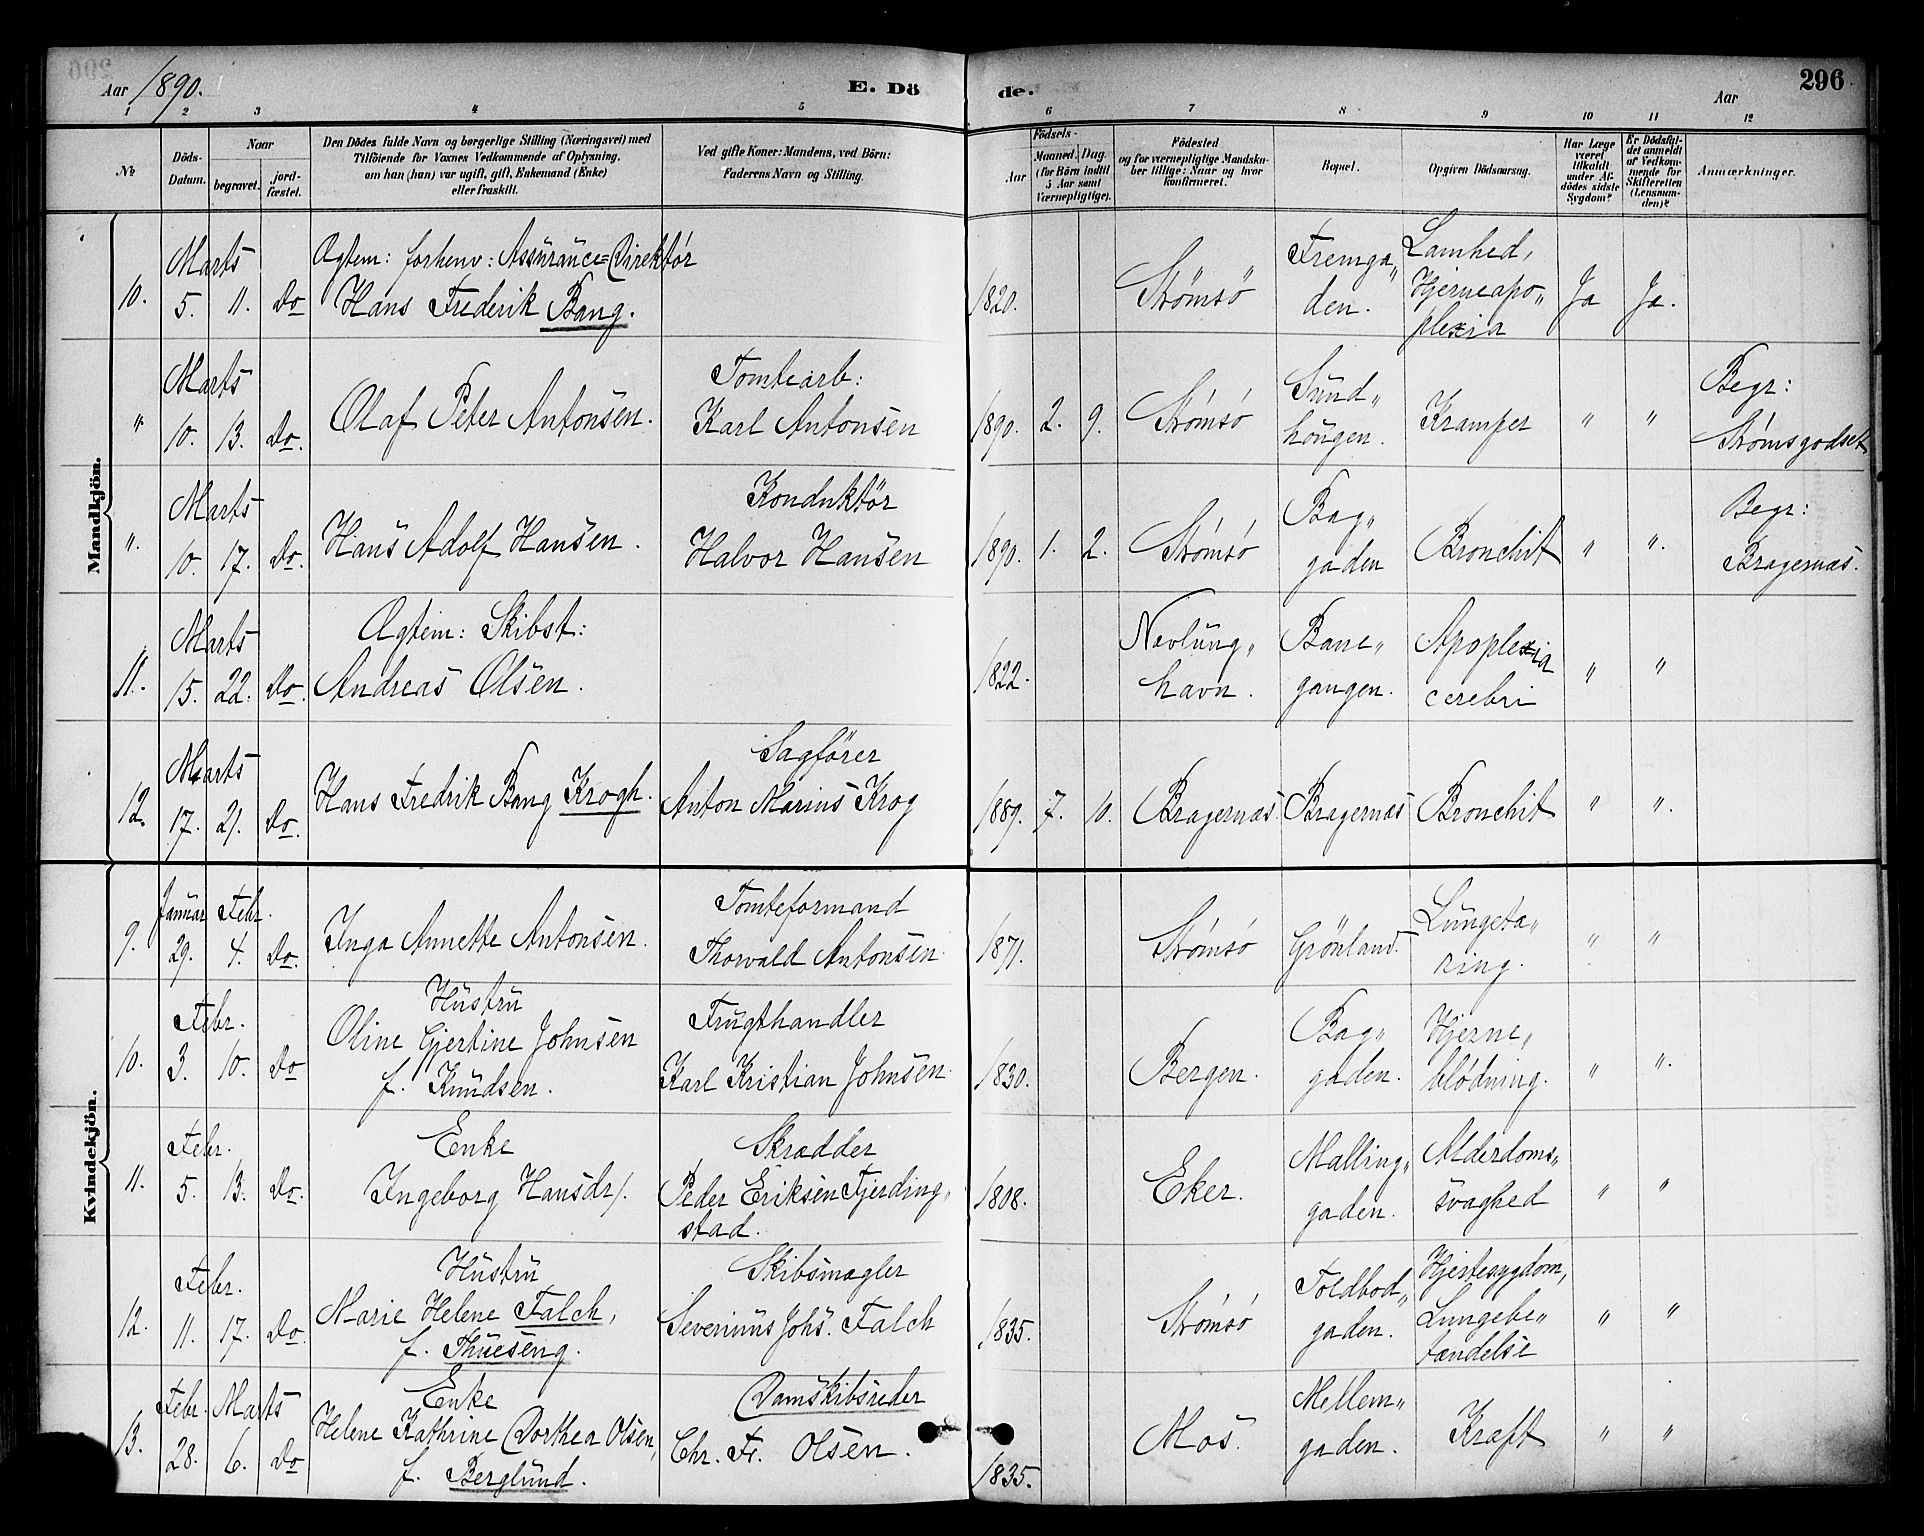 296
Aar 1890. E. Döde. Aar
1 2 3 4 5 6 7 8 9 10 11 12
No
Döds-Datum.
Naar
begravet.
jord-fæstet.
Den Dödes fulde Navn og borgerlige Stilling (Næringsvei) med
Tilföiende for Voxnes Vedkommende af Oplysning,
om han (hun) var ugift, gift, Enkemand (Enke)
eller fraskilt.
Ved gifte Koner: Mandens, ved Börn:
Faderens Navn og Stilling.
Födsels-
Aar
Maaned. Dag.
(for Börn indtil
5 Aar samt
Værnepligtige).
Födested
og for værnepligtige Mandsku-
ber tillige: Naar og hvor
konfirmeret.
Bopæl.
Opgiven Dödsaarsag.
Har Læge
været
tilkaldt
under Af-
dödes sidste
Sygdom?
Er Dödsfal-
det anmeldt
af Vedkom-
mende for
Skifteretten
(Lensman-
den)?
Anmærkninger.
Mandkjön.
10. Marts 5. 11. Do Ægtem: forhenv: Assürance=Direktør
Hans Frederik Bang. 1820. Strømsø Fremga„den. Lamhed, Hjerneapo„plexia Ja Ja.
„ Marts 10. 13. Do. Olaf Peter Antonsen. Tomtearb: Karl Antonsen 1890. 2. 9. Strømsø Sünd„haugen. Kramper „ „ Begr: Strømsgodset
„. Marts 10. 17. Do. Hans Adolf Hansen. Konduktör Halvor Hansen 1890. 1. 2. Strømsø Bag„gaden Bronchit „ „. Begr: Bragernæs.
11. Marts 15. 22. Do. Ægtem: Skibst: Andreas Olsen. 1822. Nevlüng„havn. Bane„gangen. Apoplexia cerebri „ „
12. Marts 17. 21. Do. Hans Fredrik Bang Krogh. Sagförer Anton Marius Krog 1889. 7. 10. Bragernæs. Bragernæs Bronchit „ „.
Kvindekjön.
9. Janüar 29. Febr. 4. Do. Inga Annette Antonsen. Tomteformand Thorvald Antonsen. 1871. Strømsø Grönland. Lüngetæ„ring. „ „
10. Febr. 3. 10. Do Hüstrü Oline Gjertine Johnsen f. Knüdsen. Frügthandler Karl Kristian Johnsen. 1830. Bergen. Bag„gaden. Hjerne„blödning. „ „.
11. Febr. 5. 13. Do. Enke Ingeborg Hansdr/. Skrædder Peder Eriksen Fjerding„stad. 1808. Eker. Malling„gaden. Alderdoms„svaghed „ „
12. Febr. 11. 17. Do. Hüstrü Marie Helene Falch, f. Thüeseng. Skibsmægler Severinüs Johs. Falch 1835. Strømsø Toldbod„gaden. Hjertesygdom, Lungebe„tændelse „ „
13. Febr. 28. Marts 6. Do Enke Helene Kathrine Dorthea Olsen, f. Berglünd. Damskibsreder Chr. Fr. Olsen. 1835. Mos. Mellem„gaden. Kræft „ „